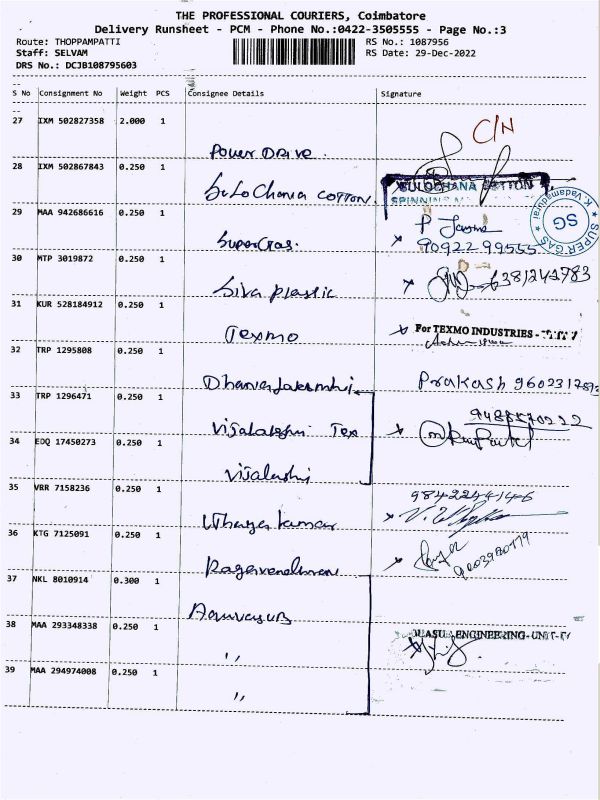 THE PROFESSIONAL COURIERS, Coimbatore
Delivery Runsheet - PCM - Phone No.:0422-3505555 - Page No.:3
Route: THOPPAMPATTI
RS No.: 1087956
Staff: SELVAM
RS Date: 29-Dec-2022
DRS No.: DCJB108795603
S No Consignment No Weight PCS Consignee Details Signature
27 IXM 502827358 2.000 1
C/N
Power Drive.
28 IXM 502867843 0.250 1
Sulochana COTTON.
SULOCHANA COTTON
SPINNING
29 MAA 942686616 0.250 1
SUPER GAS
K. Vadamadurai
SG
SuperGas.
9092299555
30 MTP 3019872 0.250 1
Siva plastic
31 KUR 528184912 0.250 1
Texmo
For TEXMO INDUSTRIES -
32 TRP 1295808 0.250 1
Dhanalakshmi
Prakash
33 TRP 1296471 0.250 1
Vijalakshmi Tex
34 EDQ 17450273 0.250 1
35 VRR 7158236 0.250 1
9842244146
Uthaya kumar
36 KTG 7125091 0.250 1
37 NKL 8010914 0.300 1
38 MAA 293348338 0.250 1
ENGINEERING - UNIT-IV
"
39 MAA 294974008 0.250 1
"